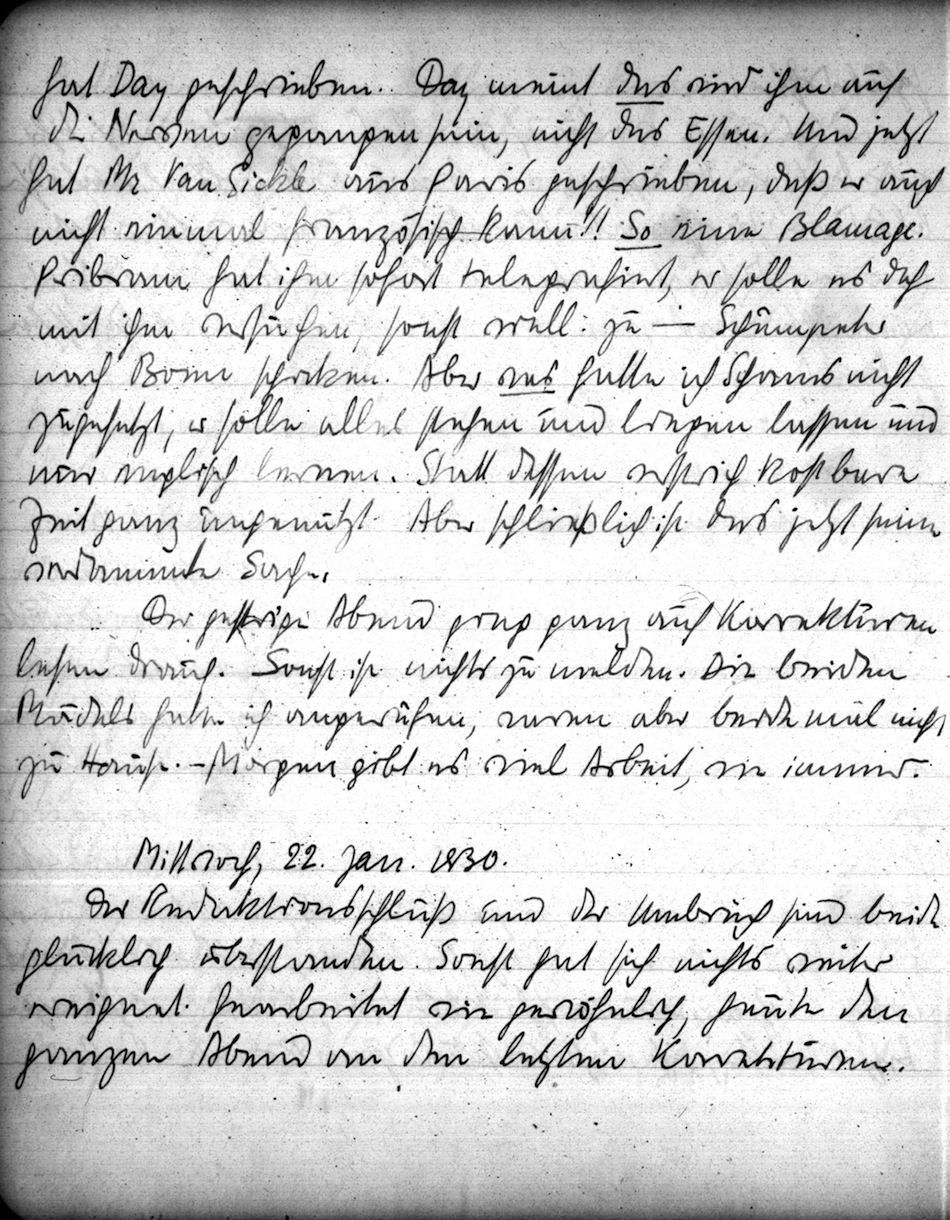 hat Day geschrieben. Day meint das wird ihm auf
die Nerven gegangen sein, nicht das Essen. Und jetzt
hat Mr Van Sickle aus Paris geschrieben, daß er auch
nicht einmal französisch kann!! So eine Blamage.
Pribram hat ihm sofort telegrafiert, er solle es doch
mit ihm versuchen, sonst will zu — Schumpeter
nach Bonn schicken. Aber was hatte ich Schams nicht
zugesetzt, er solle alles stehen und liegen lassen und
nur englisch lernen. Statt dessen verstrich kostbare
Zeit ganz ungenützt. Aber schließlich ist das jetzt seine
verdammte Sache.
Der gestrige Abend ging ganz auf Korrekturen
lesen drauf. Sonst ist nichts zu melden. Die beiden
Mädels hatte ich angerufen, waren aber beide mal nicht
zu Hause. – Morgen gibt es viel Arbeit, wie immer.
Mittwoch, 22. Jan. 1930.
Der Redaktionsschluß und der Umbruch sind beide
glücklich überstanden. Sonst hat sich nichts weiter
ereignet. Gearbeitet wie gewöhnlich, heute den
ganzen Abend an den letzten Korrekturen.